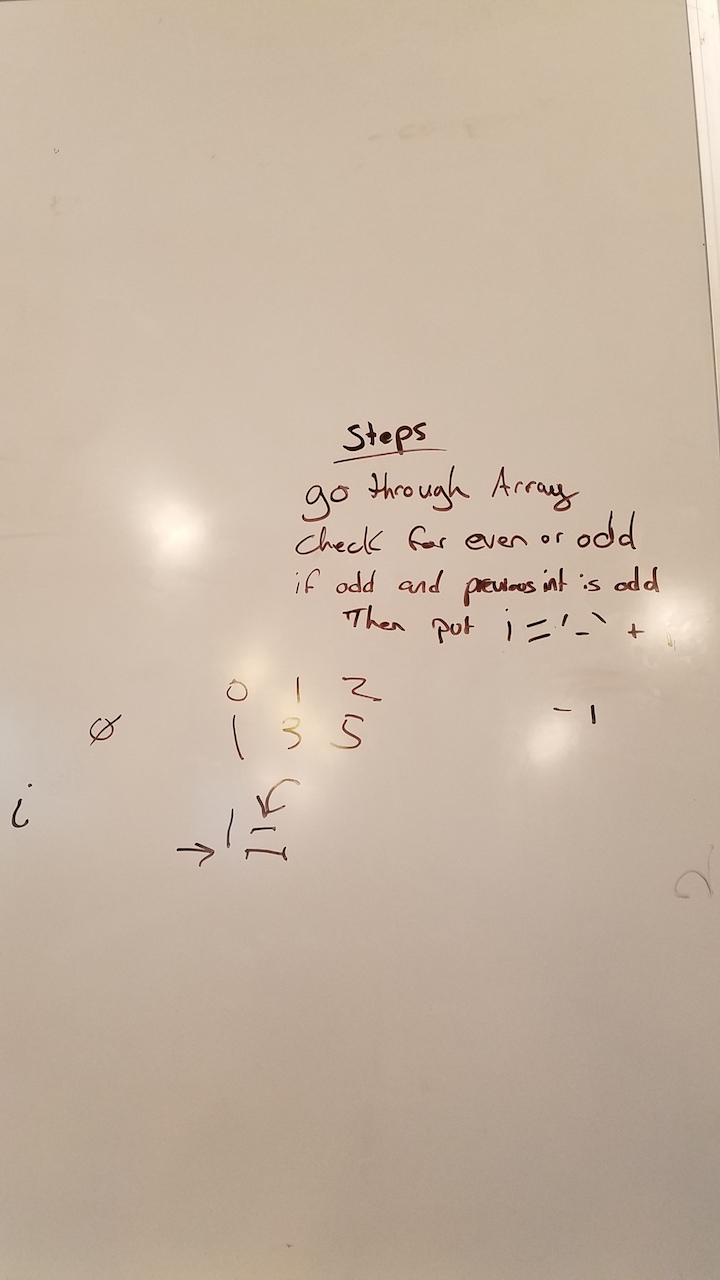 Steps
go through Array
check for even or odd
if odd and previous int is odd
Then put i = '-' +
0 1 2
Ø 1 3 5
-1
i
→ 1 -